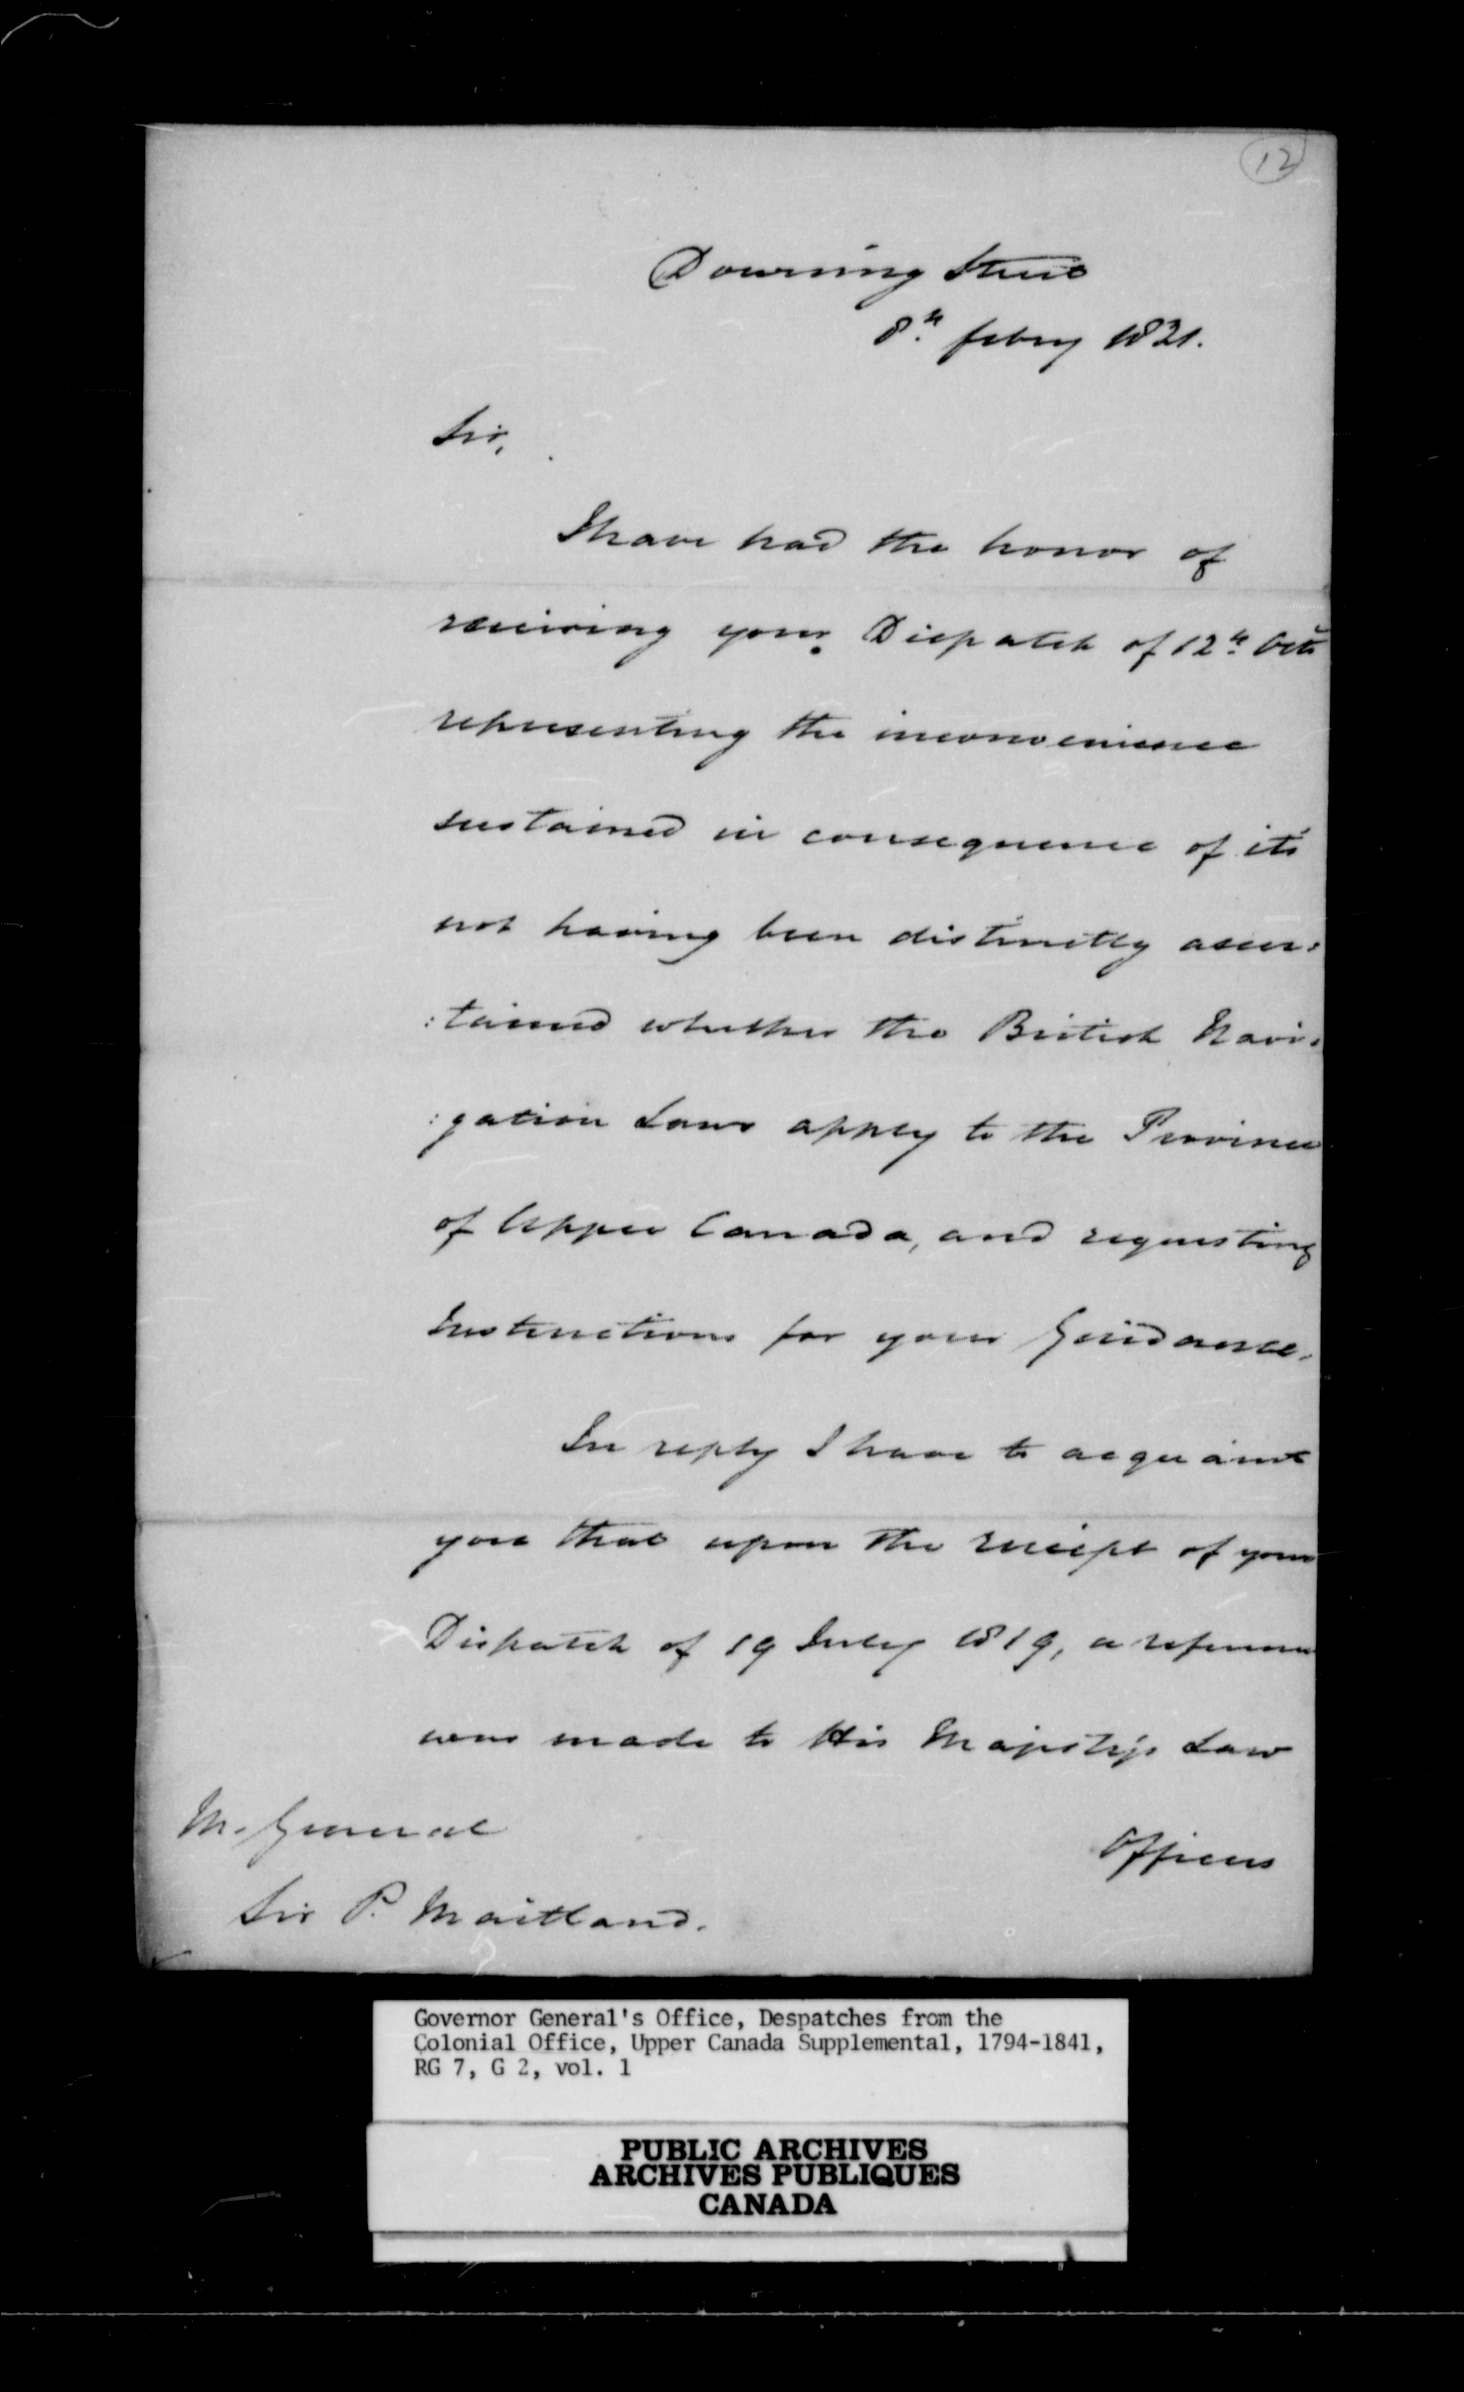 12
Downing Street
8th. febry 1821.
Sir,
I have had the honor of
receiving your Dispatch of 12th. Octr
representing the inconvenience
sustained in consequence of its
not having been distinctly ascer:
:tained whether the British Navi:
:gation Laws apply to the Province
of Upper Canada, and requesting
Instructions for your Guidance.
In reply I have to acquaint
you that upon the receipt of your
Dispatch of 19 July 1819, a reference
was made to His Majesty's Law
Officers
M. General
Sir P. Maitland.
Governor General's Office, Despatches from the
Colonial Office, Upper Canada Supplemental, 1794-1841,
RG 7, G 2, vol. 1
PUBLIC ARCHIVES
ARCHIVES PUBLIQUES
CANADA